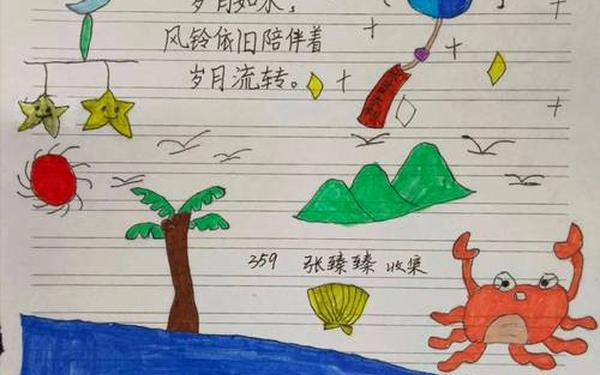 岁月如水，
风铃依旧陪伴着
岁月流转。
359 张臻臻 收集